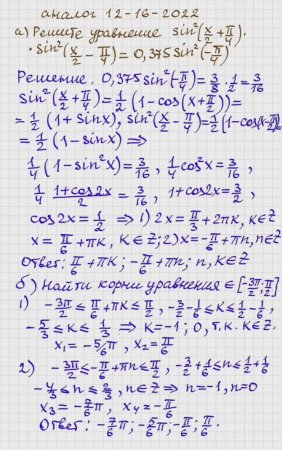 аналог 12-16-2022
а) Решите уравнение sin²(x/2 + π/4)·
· sin²(x/2 − π/4) = 0,375 sin²(−π/4)
Решение. 0,375 sin²(−π/4) = 3/8 · 1/2 = 3/16
sin²(x/2 + π/4) = 1/2 (1−cos(x+π/2)) =
= 1/2 (1+sinx), sin²(x/2 − π/4) = 1/2 (1−cos(x−π/2)) =
= 1/2 (1−sinx) ⇒
1/4 (1−sin²x) = 3/16, 1/4 cos²x = 3/16,
1/4 · (1+cos2x)/2 = 3/16, 1+cos2x = 3/2,
cos2x = 1/2 ⇒ 1) 2x = π/3 + 2πк, к∈Z
x = π/6 + πк, к∈Z; 2) x = −π/6 + πn, n∈Z
Ответ: π/6 + πк; −π/6 + πn; n, к∈Z
б) Найти корни уравнения ∈ [−3π/2; π/2]
1) −3π/2 ≤ π/6 + πк ≤ π/2, −3/2 − 1/6 ≤ к ≤ 1/2 − 1/6,
−5/3 ≤ к ≤ 1/3 ⇒ к=−1; 0, т.к. к∈Z.
x₁ = −5/6 π, x₂ = π/6
2) −3π/2 ≤ −π/6 + πn ≤ π/2, −3/2 + 1/6 ≤ n ≤ 1/2 + 1/6
−4/3 ≤ n ≤ 2/3, n∈Z ⇒ n=−1, n=0
x₃ = −7/6 π, x₄ = −π/6
Ответ: −7/6 π; −5/6 π; −π/6; π/6.